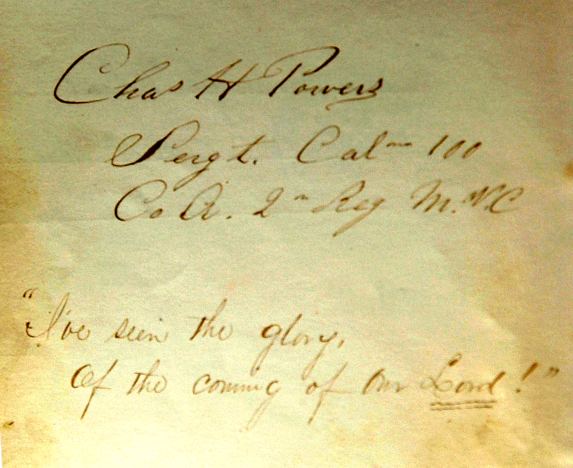 Chas H Powers
Sergt. Cal 100
Co A. 2n Reg M.V.C
"I've seen the glory,
Of the coming of our Lord!"